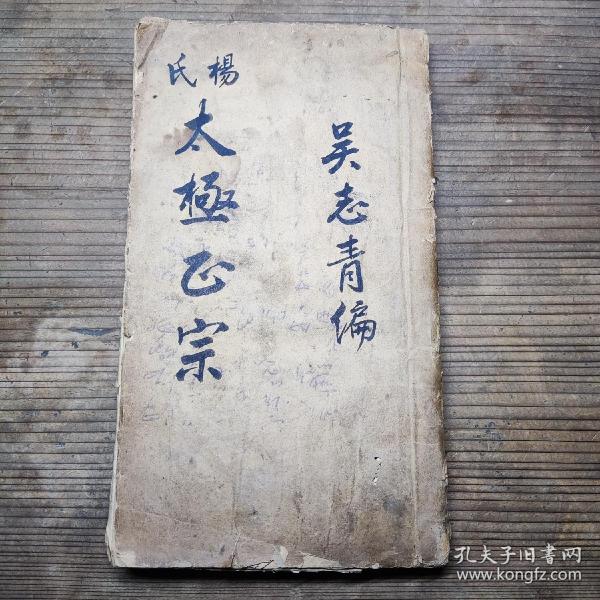 吴志青编
楊氏
太極正宗
孔夫子旧書网
www.kongfz.com